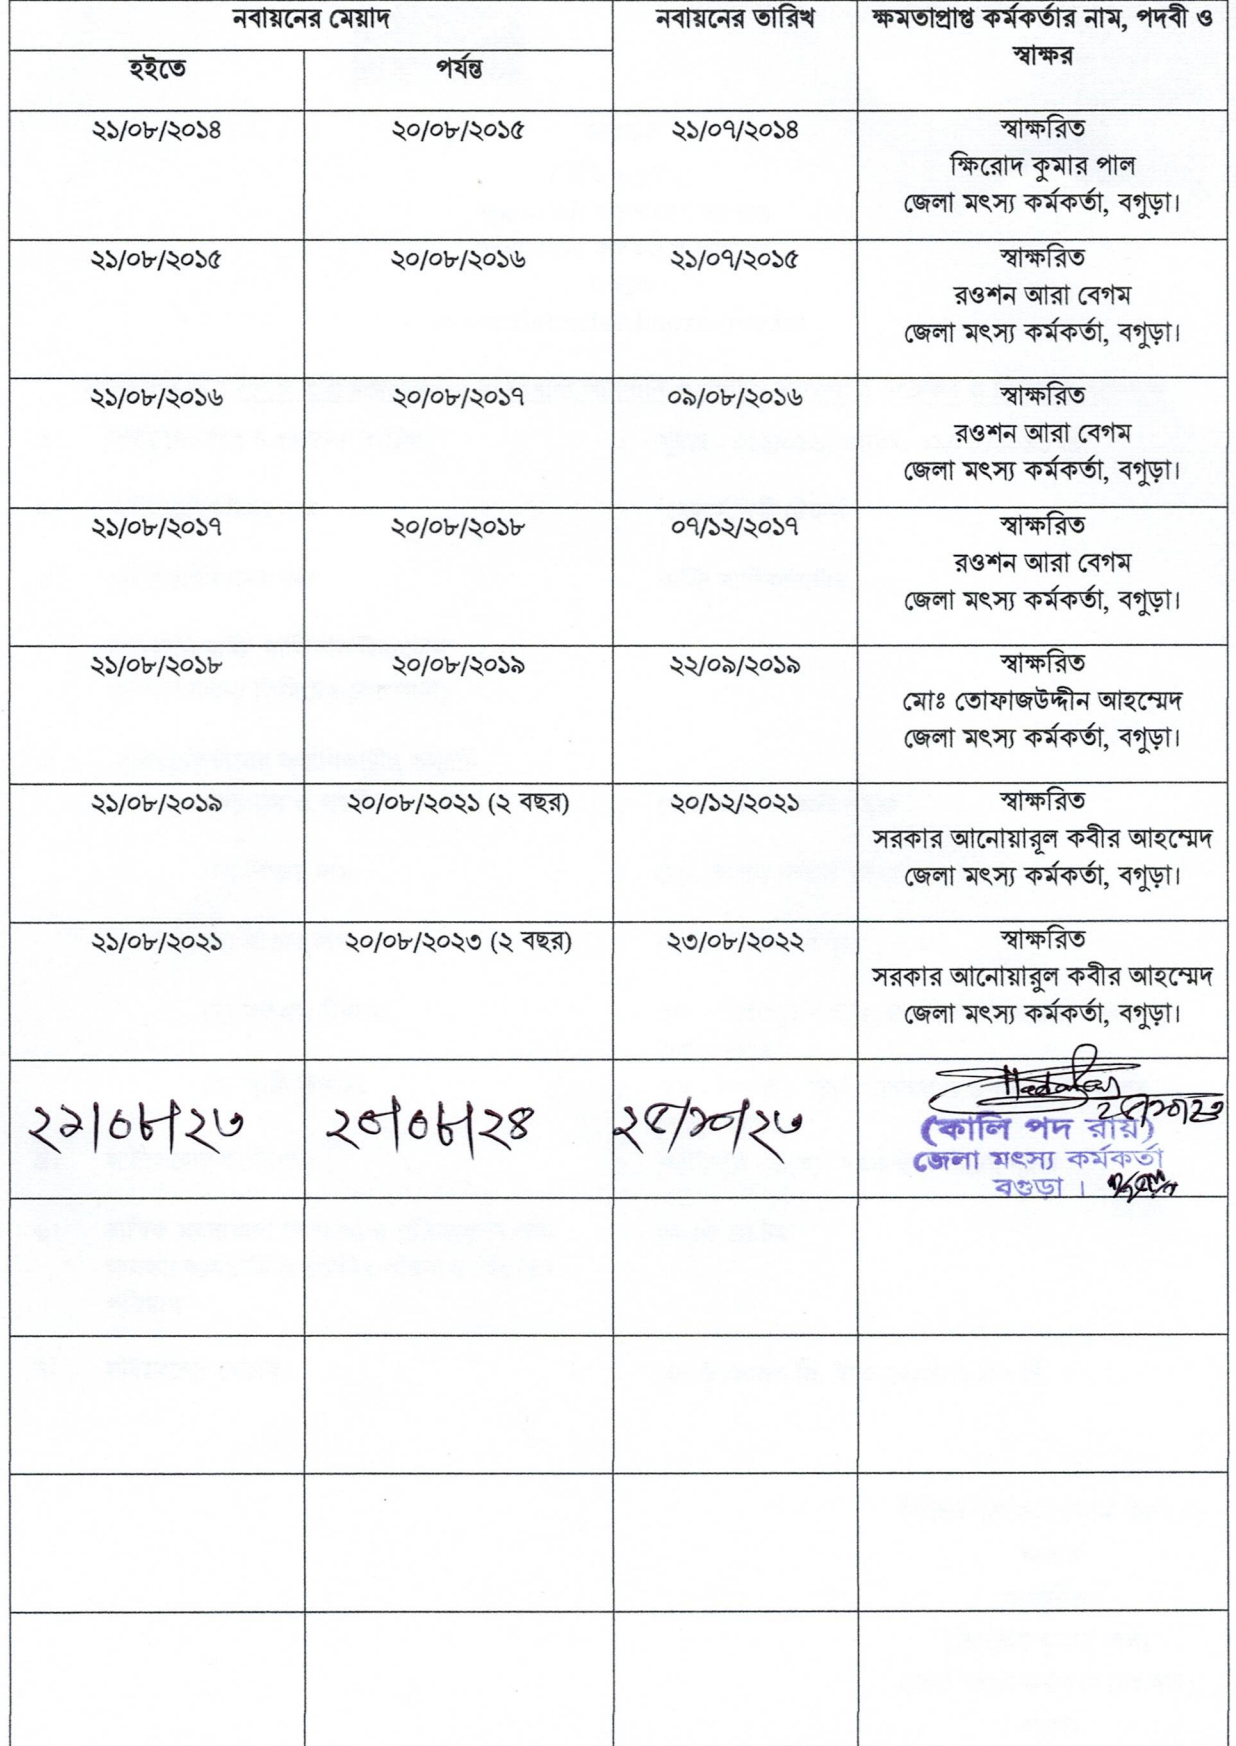 নবায়নের মেয়াদ নবায়নের তারিখ ক্ষমতাপ্রাপ্ত কর্মকর্তার নাম, পদবী ও
স্বাক্ষর
হইতে পর্যন্ত
২১/০৮/২০১৪ ২০/০৮/২০১৫ ২১/০৭/২০১৪ স্বাক্ষরিত
ক্ষিরোদ কুমার পাল
জেলা মৎস্য কর্মকর্তা, বগুড়া।
২১/০৮/২০১৫ ২০/০৮/২০১৬ ২১/০৭/২০১৫ স্বাক্ষরিত
রওশন আরা বেগম
জেলা মৎস্য কর্মকর্তা, বগুড়া।
২১/০৮/২০১৬ ২০/০৮/২০১৭ ০৯/০৮/২০১৬ স্বাক্ষরিত
রওশন আরা বেগম
জেলা মৎস্য কর্মকর্তা, বগুড়া।
২১/০৮/২০১৭ ২০/০৮/২০১৮ ০৭/১২/২০১৭ স্বাক্ষরিত
রওশন আরা বেগম
জেলা মৎস্য কর্মকর্তা, বগুড়া।
২১/০৮/২০১৮ ২০/০৮/২০১৯ ২২/০৯/২০১৯ স্বাক্ষরিত
মোঃ তোফাজউদ্দীন আহম্মেদ
জেলা মৎস্য কর্মকর্তা, বগুড়া।
২১/০৮/২০১৯ ২০/০৮/২০২১ (২ বছর) ২০/১২/২০২১ স্বাক্ষরিত
সরকার আনোয়ারূল কবীর আহম্মেদ
জেলা মৎস্য কর্মকর্তা, বগুড়া।
২১/০৮/২০২১ ২০/০৮/২০২৩ (২ বছর) ২৩/০৮/২০২২ স্বাক্ষরিত
সরকার আনোয়ারুল কবীর আহম্মেদ
জেলা মৎস্য কর্মকর্তা, বগুড়া।
২১/০৮/২৩ ২০/০৮/২৪ ২৫/১০/২৩ ২৫/১০/২৩
(কালি পদ রায়)
জেলা মৎস্য কর্মকর্তা
বগুড়া ।